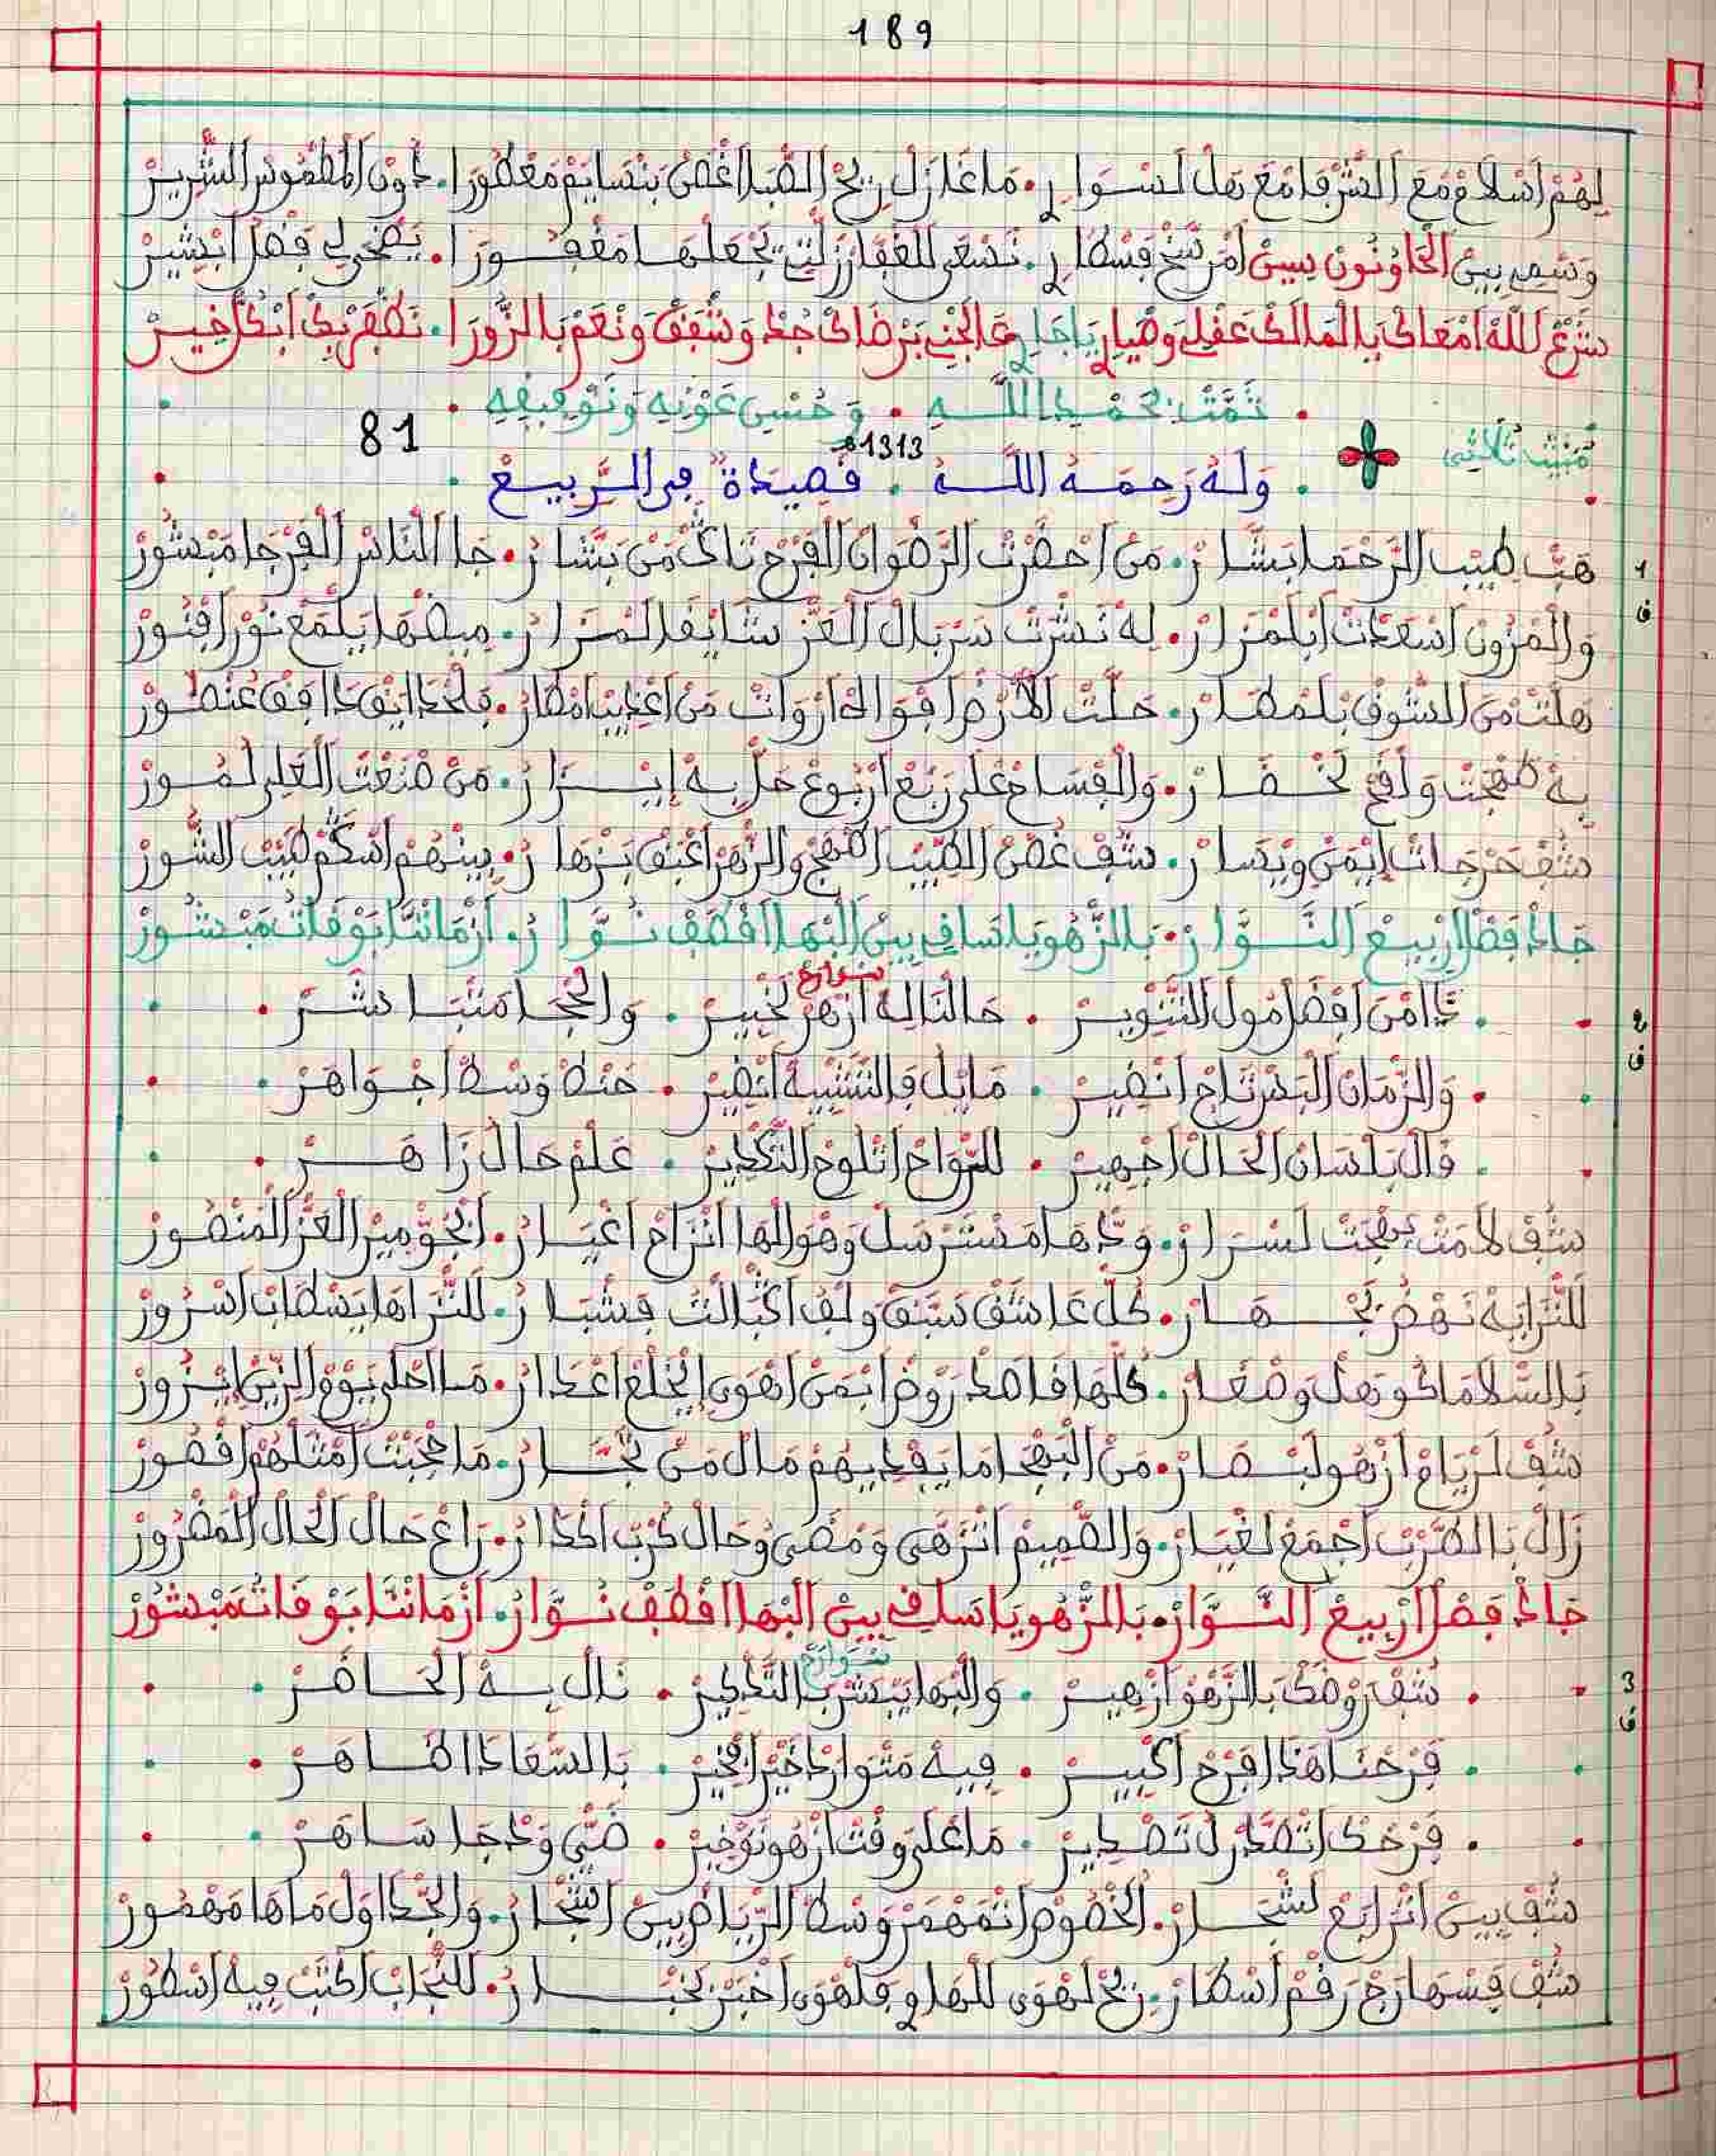 189
لهم اسلام مع الشرفا مع هل لسوار. ما غازل ريح الصبا اغصن بنسايم معطورا. دون المطموس الشرير
وسمي بين الحا ونون يسن امر شيخ فسطار. نسعى للغفار زلتي يجعلها مغفورا. يضحى لي فضل ابشير
شرع لله امعاك يا لمالك عقلي وصيار يا جار عالجني برضاك جد وشفق ونعم بالزورا. نظفر بك ابكل خير
تمت بحمد الله. وحسن عونه وتوفيقه.
81
مبيت ثلاثي
1313 ه
وله رحمه الله. قصيدة في الربيع
1
ف
هب طيب الرحما بشار. من احضرت الرضوان الفرح تاك من بشار. جا الناس الفرجا مبشور
والمزون اسعدت ابلمزار. له نشرت سربال العز شايفا لمزار. ميضها يلمع نور افنور
هلت من الشوف بلمطار. حلت الارض افواه اروات من اعذيب امطار.
به طهجت ولفح لخضار. والفساح على ربع اربوع حل به ايزار. من صنعت العلي لمور
شف حرجات ايمن ويسار. شف غصن الطيب الهج والزهر اعبق بزهار. بينهم اسكم طيب الشور
جاد فصل اربيع النوار. بالزهو يا ساقي بين البها اقطف نوار. ازماننا بوفات مبشور
2
ف
سوارح
تا امن افضل مول التنوير. حالنا له ازهر لخبير. والحجا منبا شر
والزمان البدر تاج انضير. مايل فالتشبيه انظير. حنط وسط اجواهر
قال بلسان الحال اجهير. للرواح اتلوح التكدير. علم حال زاهر
شف لامت بهجت لسرار. ودها مسترسل وهوالها انزاح اغيار. الجو مير العز المنصور
للنزا به نهض لجهار. كل عاشق سبق ولف اكبالت فشبار. للنزاها يسطاب اسرور
بالسلاما دو هل وصغار. كلها قاصد روض ابمن اهوى ايخلع اعدار. ما احلى يوم الزين ايزور
شف لرياح ازهو لبصار. من البهجا ما يفديهم مال من تجار. ما حجبت امثلهم اقصور
زال بالطرب اجمع لغيار. والضميم انزهى ومضى وحال كرب اكدار. راغ حال الحال المضرور
جاد فصل اربيع النوار. بالزهو يا ساقي بين البها اقطف نوار. ازماننا بوفات مبشور
3
ف
سوارح
شف روضك بالزهو ازهير. والبها يبشر بالتكدير. نال به الحاضر
فرحنا هذا فرح اكبير. فيه متوارد خير افخير. بالسعادا الطاهر
فرحك اتصدر ل تصدير. ما على وقت ازهو توخير. ضي ودجا ساهر
شف بين اتزايع لشجار. الخصوص اتمهمر وسط الرياض بين اشجار. والجداول ماها مهمور
شف فسهارج رقم اسطار. ريح لهوى للهاوي فلهوى اخبر لخبار. للتجاب اكتب فيه اسطور